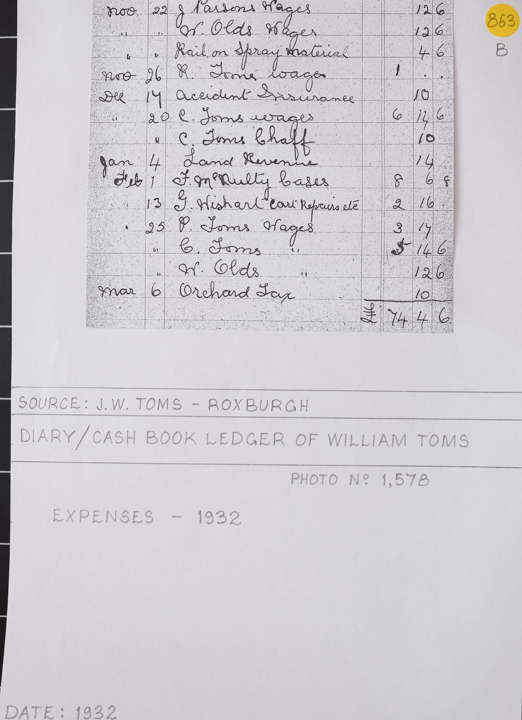 Nov 22 J Parsons Wages 12 6
" " W. Olds Wages 12 6
" " Rail on Spray material 4 6
Nov 26 R. Toms wages 1 . .
Dec 17 accident Insurance 10
" 20 C. Toms wages 6 14 6
" C. Toms Chaff 10
Jan 4 Land Revenue 14
Feb 1 F. McNulty Cases 8 6 8
" 13 G. Wishart Cart Repairs etc 2 16
" 25 P. Toms Wages 3 17
" C. Toms " 5 14 6
" W. Olds " 12 6
Mar 6 Orchard Tax 10
74 4 6
863
B
SOURCE: J.W. TOMS - ROXBURGH
DIARY/CASH BOOK LEDGER OF WILLIAM TOMS
PHOTO Nº 1,578
EXPENSES - 1932
DATE: 1932